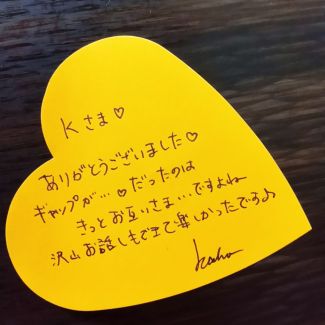 Kさま♡
ありがとうございました♡
ギャップが…♡だったのは
きっとお互いさま…ですよね
沢山お話しもできて楽しかったです♪